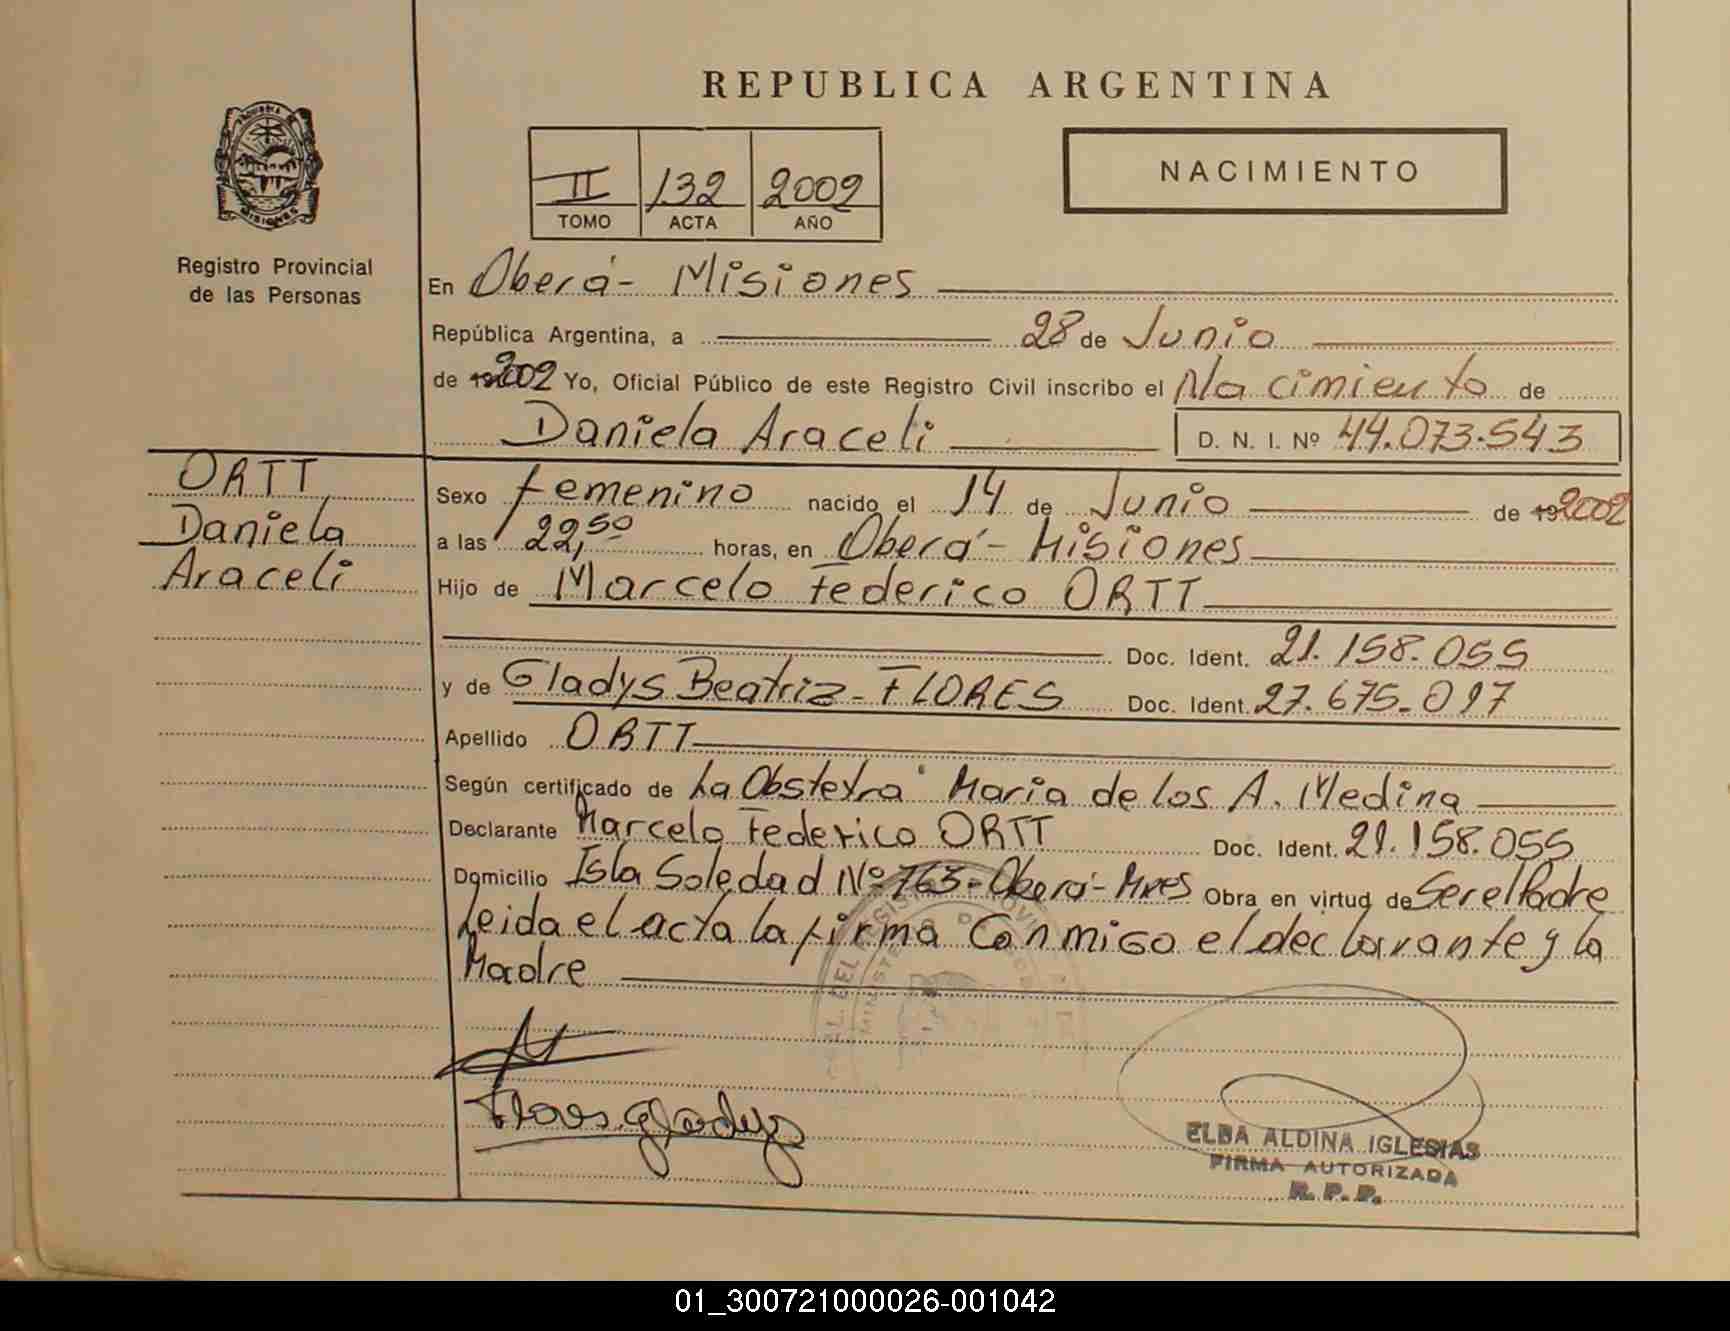 REPUBLICA ARGENTINA
II 132 2002
TOMO ACTA AÑO
NACIMIENTO
PROVINCIA DE
MISIONES
Registro Provincial
de las Personas
En Oberá - Misiones
República Argentina, a 28 de Junio
de 192002 Yo, Oficial Público de este Registro Civil inscribo el Nacimiento de
Daniela Araceli D. N. I. Nº 44.073.543
ORTT
Daniela
Araceli
Sexo femenino nacido el 14 de Junio de 192002
a las 22,50 horas, en Oberá - Misiones
Hijo de Marcelo Federico ORTT
Doc. Ident. 21.158.055
y de Gladys Beatriz - FLORES Doc. Ident. 27.675.017
Apellido ORTT
Según certificado de La Obstetra Maria de los A. Medina
Declarante Marcelo Federico ORTT Doc. Ident. 21.158.055
Domicilio Isla Soledad Nº 763 - Oberá - Mnes Obra en virtud de Ser el Padre
Leida el acta la firma Conmigo el declarante y la
Madre
Flores Gladys
ELBA ALDINA IGLESIAS
FIRMA AUTORIZADA
R. P. P.
01_300721000026-001042